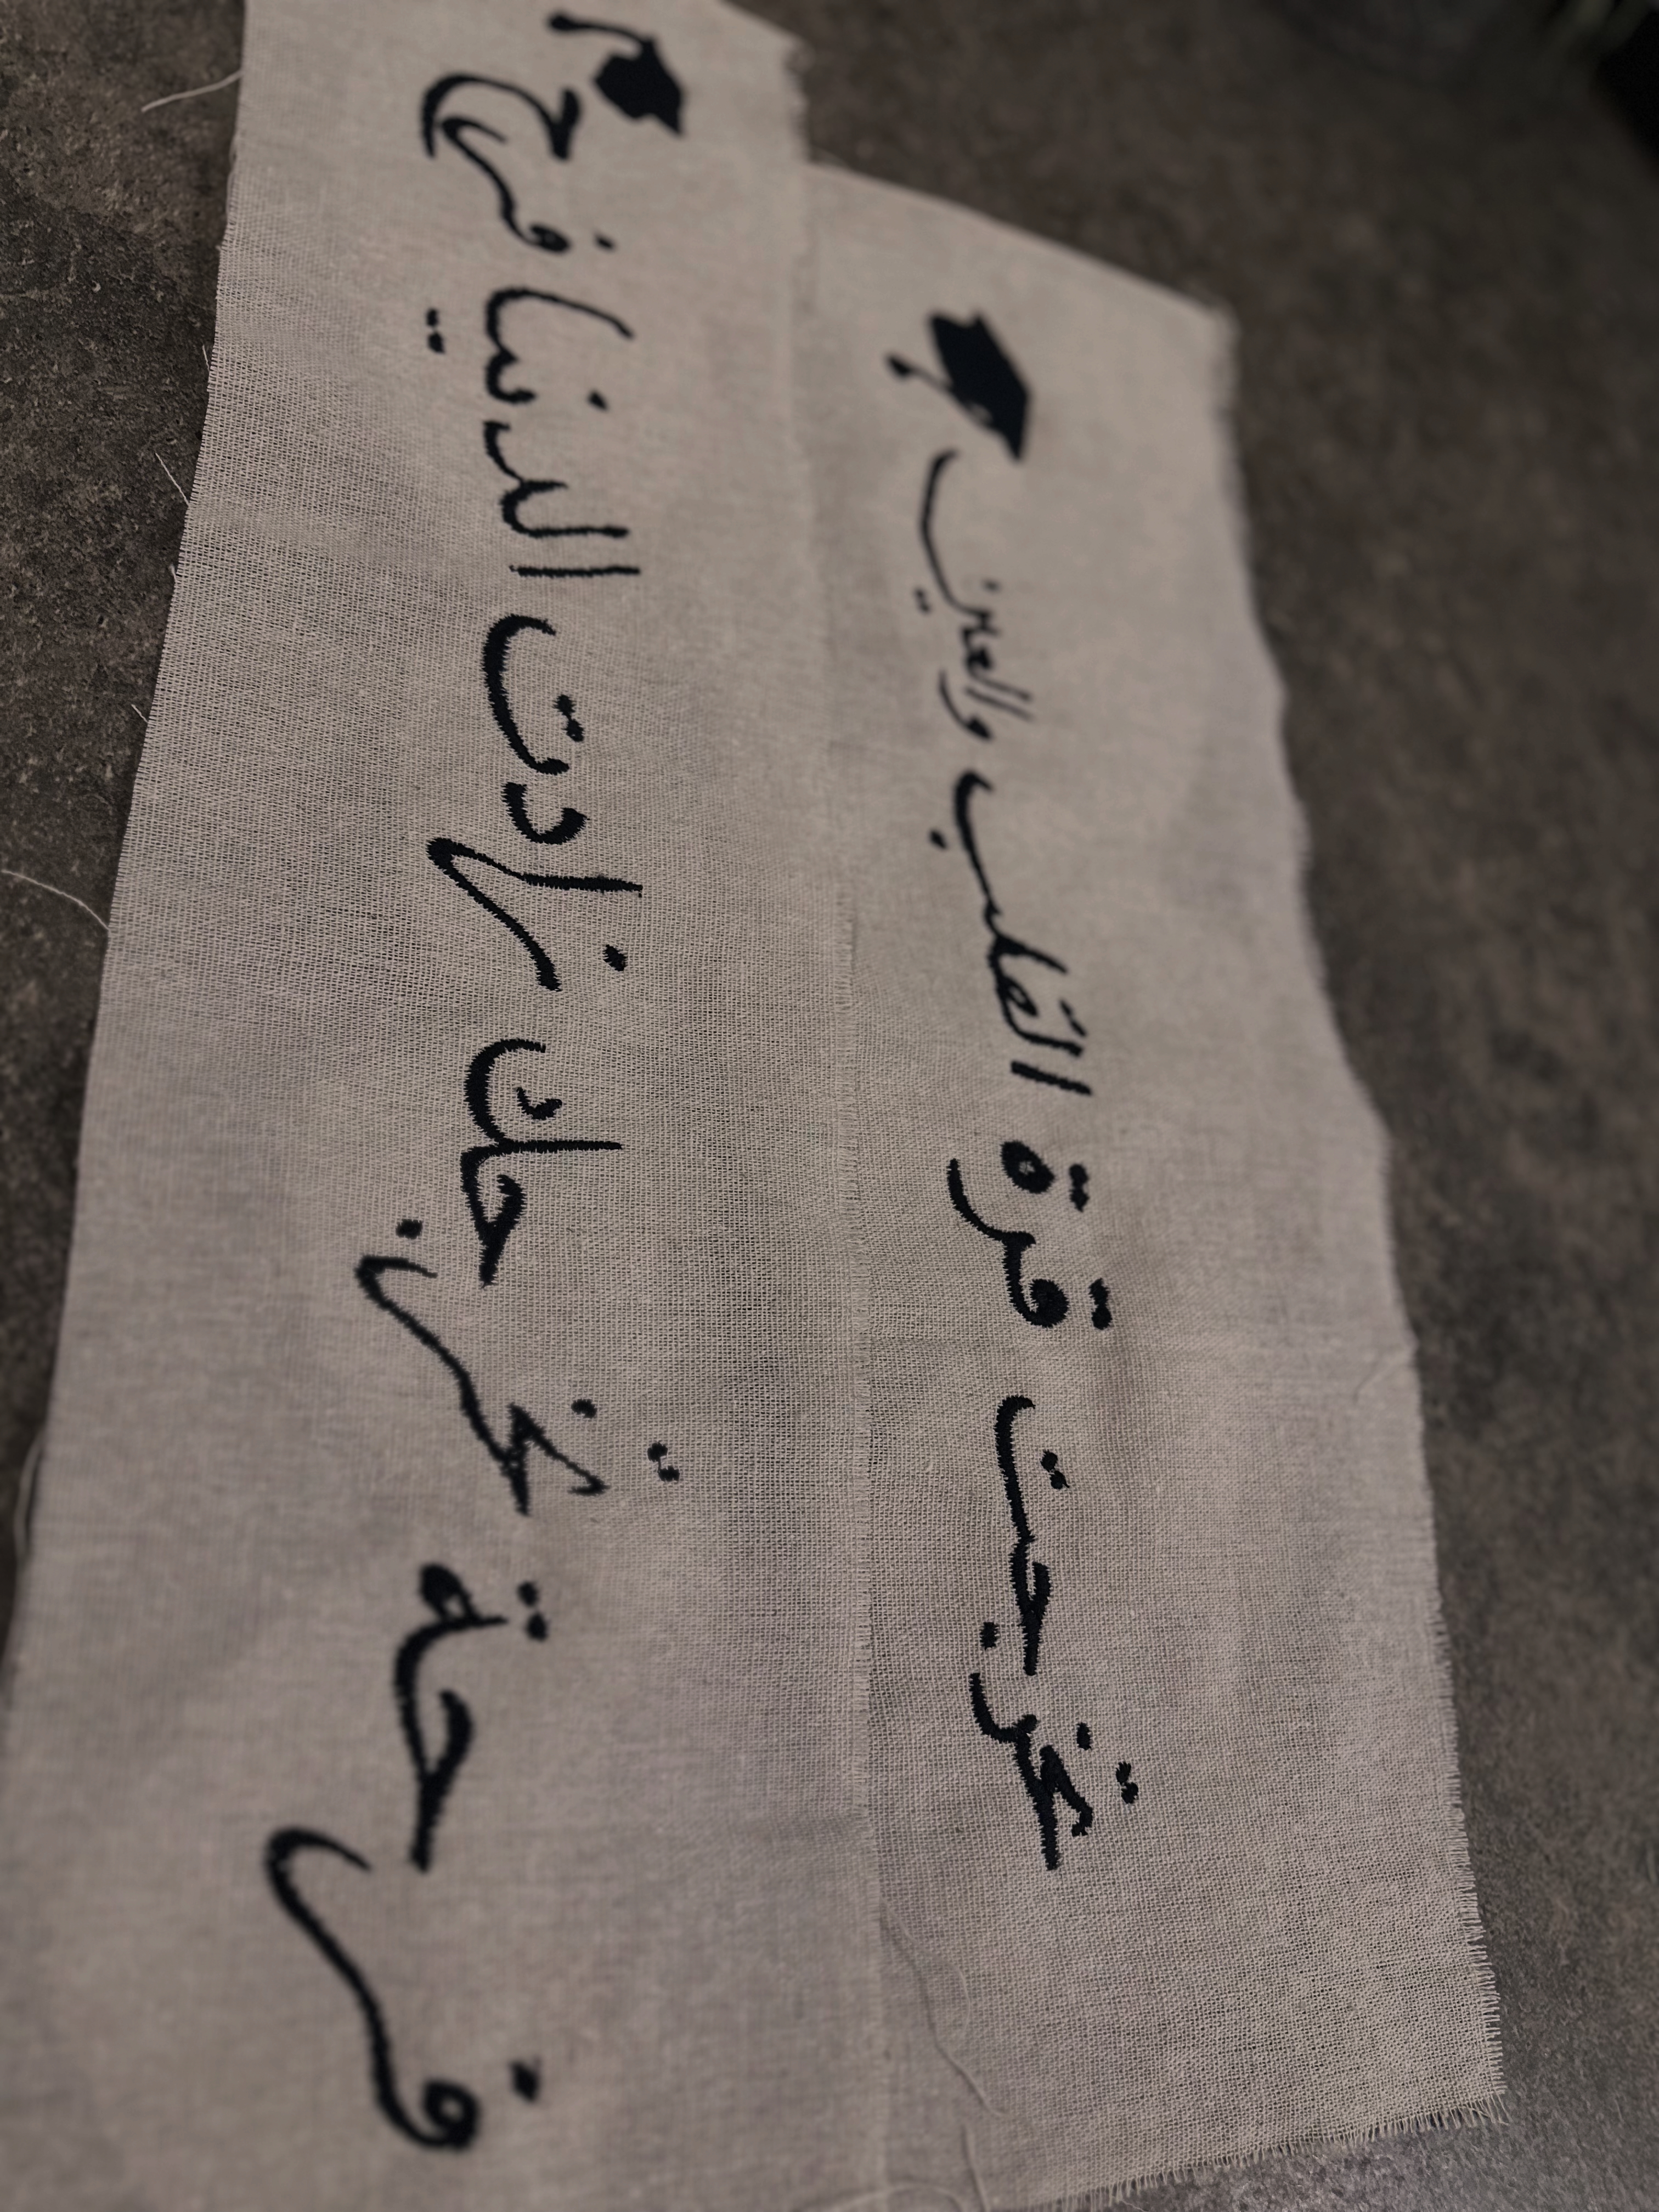 تخرجت قرة القلب والعين
فرحة تخرجك زادت الدنيا فرح